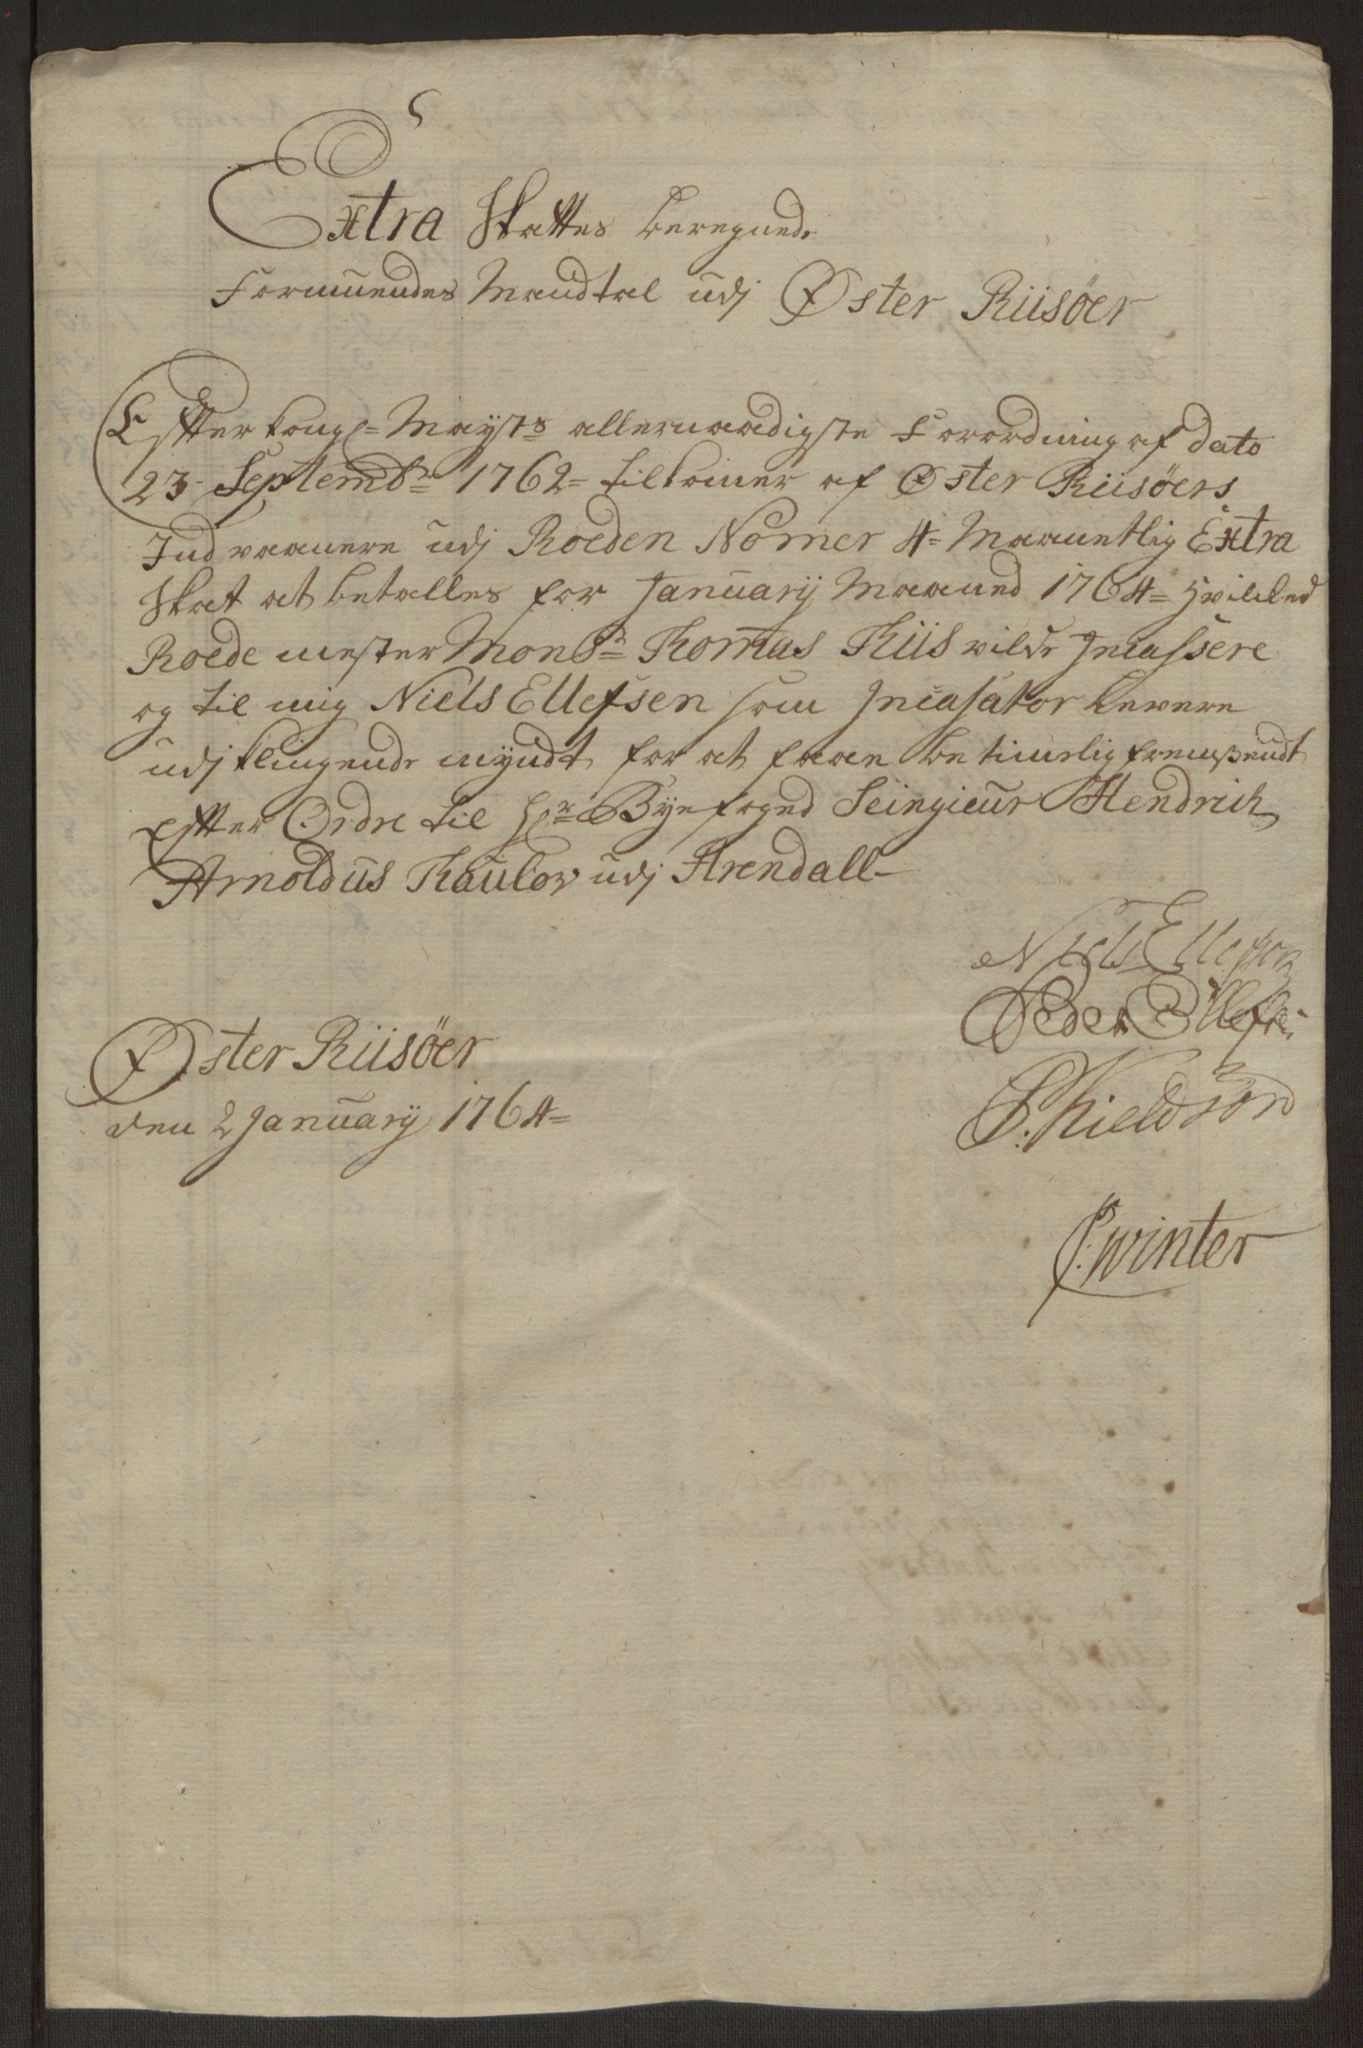 Extra Skattes beregnede
Formuendes Mandtal udj Øster Riisöer
Effter kongl= Mayts allernaadigste Forordning af dato
23 Septembr 1762= tilkomer af Øster Riisöers
Indvaanere udj Roeden Nomer 4= Maanetlig Extra
Skat at betalles for Januarij Maaned 1764= hvilcked
Roede mester Monsr Thomas Thiis vilde Incassere
og til mig Niels Ellefsen som Incasator levere
udj klingende myndt for at faae betimelig fremsendt
effter Ordre til Hr Byefoged Seingieur Hendrich
Arnoldus Thaulov udj Arendall
Niels Ellefsen
Peder Ellefsen
Øster Riisöer
den 2 Januarij 1764=
P: Kieldsön
P: winter